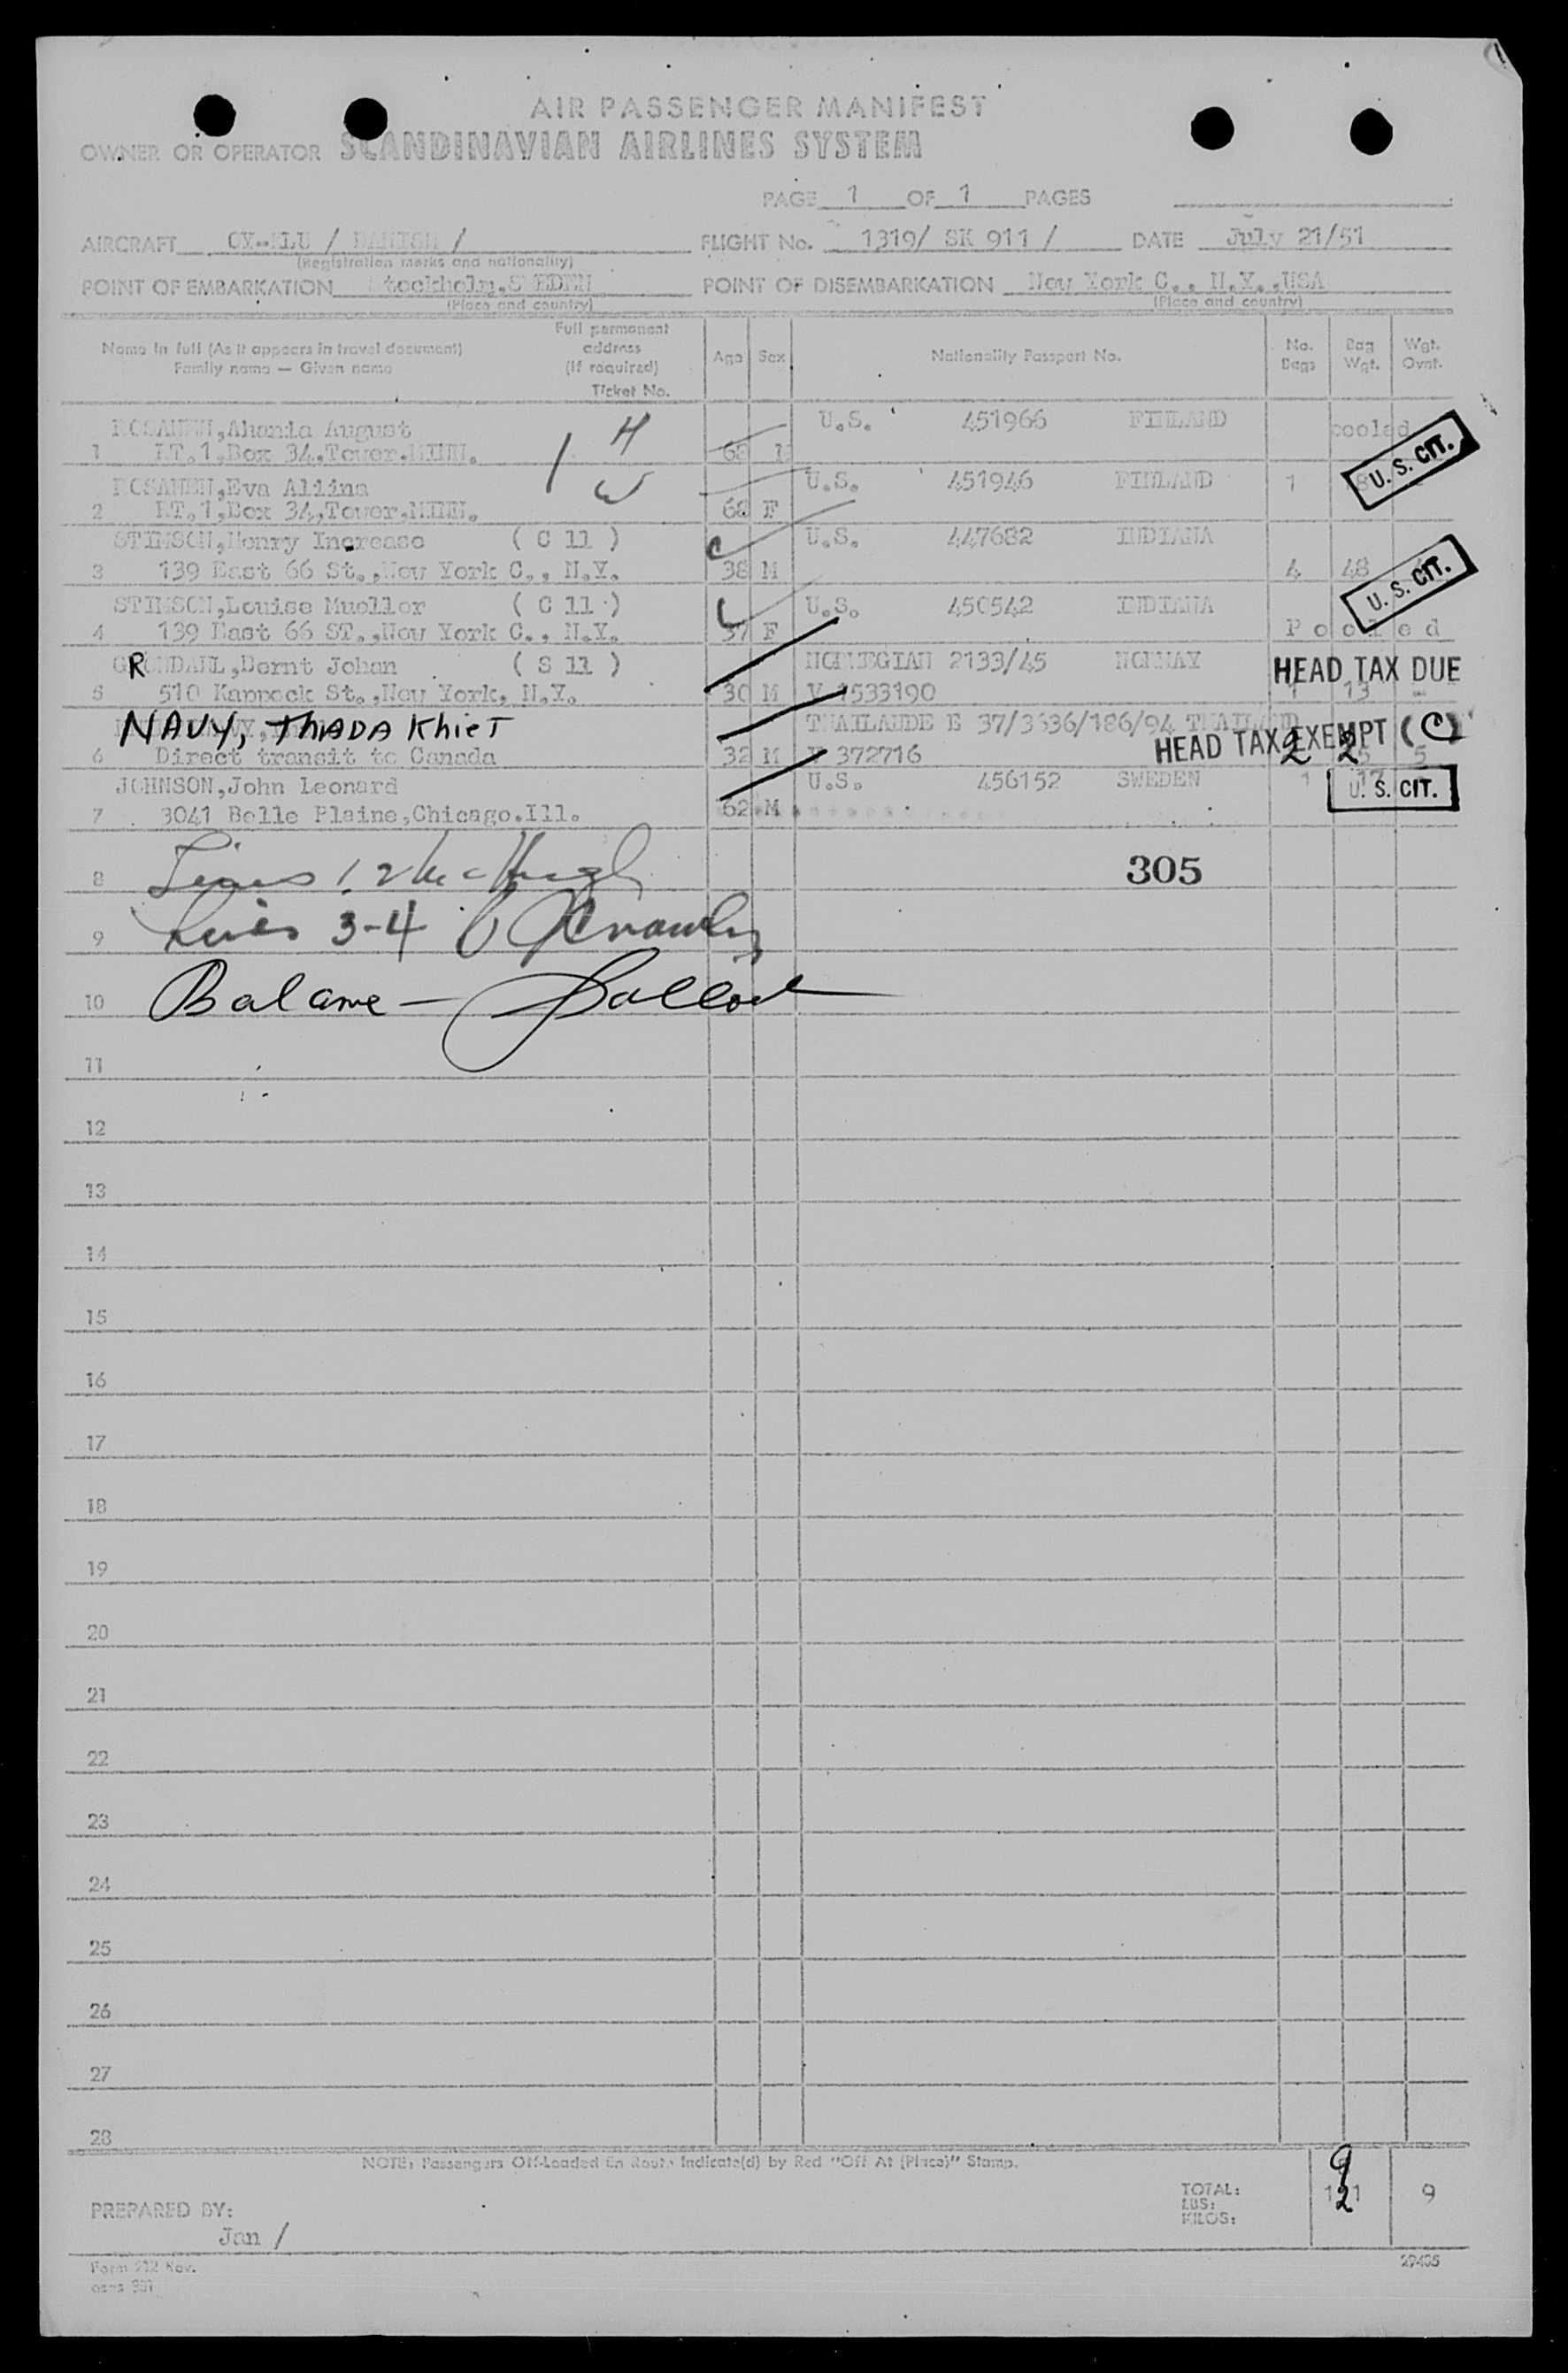 AIR PASSENGER MANIFEST
OWNER OR OPERATOR SCANDINAVIAN AIRLINES SYSTEM
PAGE 1 OF 1 PAGES
AIRCRAFT / DANISH / FLIGHT No. 1319/ SK 911 / DATE July 21/51
(Registration marks and nationality)
POINT OF EMBARKATION Stockholm, SWEDEN POINT OF DISEMBARKATION New York C., N.Y.,USA
(Place and country) (Place and country)
Name in full (As it appears in travel document)
Family name — Given name
Full permanent
address
(If required)
Ticket No.
Age Sex Nationality Passport No. No. Bags Bag Wgt. Wgt. Ovnt.
August U.S. 451966 FINLAND pooled
1 RT.1,Box 34,Tower.MINN. 1 H 68 M U. S. CIT.
Eva U.S. 451946 FINLAND 1
2 RT.1,Box 34,Tower.MINN. W 68 F
STIMSON,Henry Increase ( C 11 ) U.S. 447682 INDIANA
3 139 East 66 St.,New York C., N.Y. 38 M 4 48 U. S. CIT.
STIMSON,Louise Mueller ( C 11 ) U.S. 450542 INDIANA
4 139 East 66 ST.,New York C., N.Y. 37 F Pooled
Bernt Johan ( S 11 ) NORWEGIAN 2133/45 NORWAY HEAD TAX DUE
5 510 Kappock St.,New York, N.Y. 30 M V 1533190 1 13 -
NAVY, THADA KhieT THAILANDE E 37/3636/186/94 THAILAND
6 Direct transit to Canada 32 M V 372716 HEAD TAX EXEMPT (C) 2 2 5
JOHNSON,John Leonard U.S. 456152 SWEDEN 1 17 U. S. CIT.
7 3041 Belle Plaine,Chicago.Ill. 62 M
8 Lines 1.2 McHugh 305
9 Lines 3-4
10 Balance —
11
12
13
14
15
16
17
18
19
20
21
22
23
24
25
26
27
28
NOTE: Passengers Off-Loaded En Route Indicate(d) by Red "Off At (Place)" Stamp.
PREPARED BY:
Jan /
TOTAL:
LBS:
KILOS:
9
Form 212 Rev.
29405